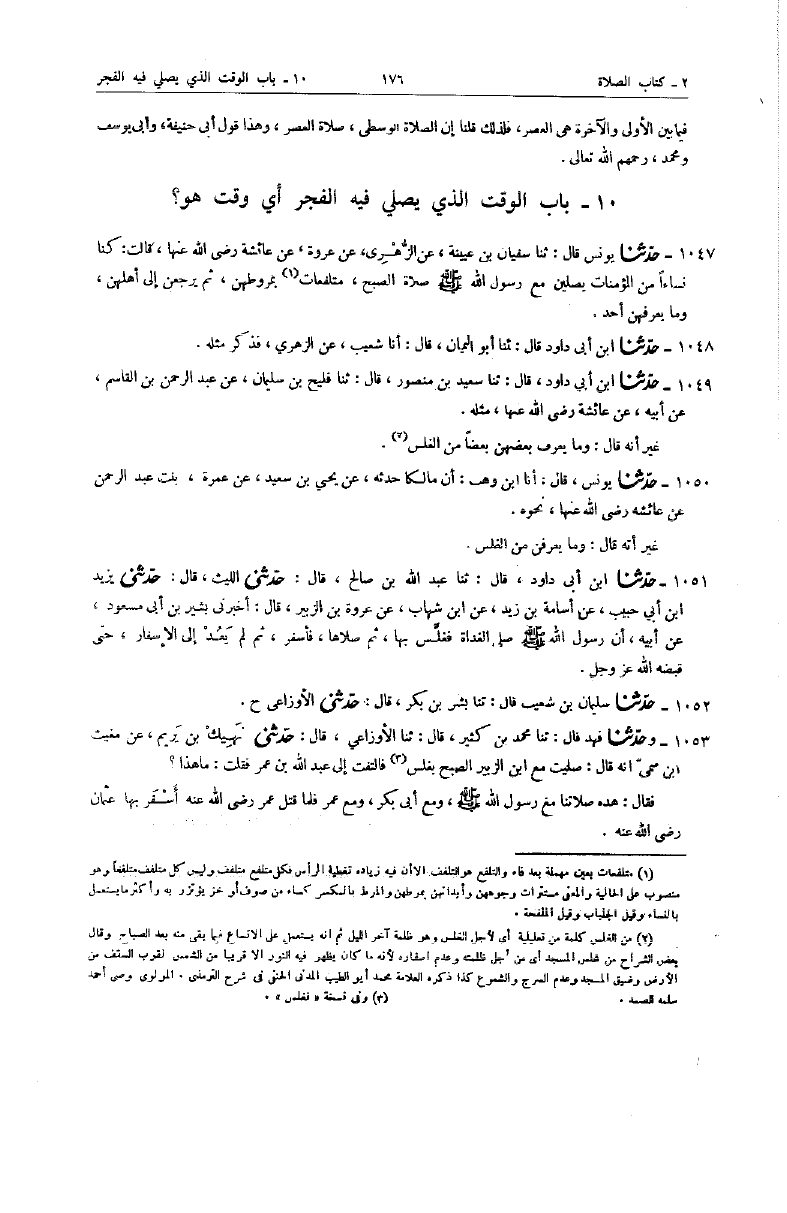 ٢ ـ كتاب الصلاة ١٧٦ ١٠ ـ باب الوقت الذي يصلي فيه الفجر
فيما بين الأولى والآخرة هى العصر، فلذلك قلنا إن الصلاة الوسطى ، صلاة العصر ، وهذا قول أبى حنيفة، وأبى يوسف
ومحمد ، رحمهم الله تعالى .
١٠ ـ باب الوقت الذي يصلي فيه الفجر أي وقت هو؟
١٠٤٧ ـ حدثنا يونس قال : ثنا سفيان بن عيينة ، عن الزُّهْرِى، عن عروة ، عن عائشة رضى الله عنها ، قالت: كنا
نساءاً من المؤمنات يصلين مع رسول الله ﷺ صلاة الصبح ، متلفعات(١) بمروطهن ، ثم يرجعن إلى أهلهن ،
وما يعرفهن أحد .
١٠٤٨ ـ حدثنا ابن أبى داود قال : ثنا أبو اليمان ، قال : أنا شعيب ، عن الزهري ، فذكر مثله .
١٠٤٩ ـ حدثنا ابن أبى داود ، قال : ثنا سعيد بن منصور ، قال : ثنا فليح بن سليمان ، عن عبد الرحمن بن القاسم ،
عن أبيه ، عن عائشة رضى الله عنها ، مثله .
غير أنه قال : وما يعرف بعضهن بعضاً من الغلس(٢) .
١٠٥٠ ـ حدثنا يونس ، قال : أنا ابن وهب : أن مالكا حدثه ، عن يحيي بن سعيد ، عن عمرة ، بنت عبد الرحمن
عن عائشه رضى الله عنها ، نحوه .
غير أنه قال : وما يعرفن من الغلس .
١٠٥١ ـ حدثنا ابن أبى داود ، قال : ثنا عبد الله بن صالح ، قال : حدثنى الليث ، قال : حدثنى يزيد
ابن أبي حبيب ، عن أسامة بن زيد ، عن ابن شهاب ، عن عروة بن الزبير ، قال : أخبرنى بشير بن أبى مسعود ،
عن أبيه ، أن رسول الله ﷺ صلى الغداة فغلَّس بها ، ثم صلاها ، فأسفر ، ثم لم يَعُدْ إلى الإسفار ، حتى
قبضه الله عز وجل .
١٠٥٢ ـ حدثنا سليمان بن شعيب قال : ثنا بشر بن بكر ، قال : حدثنى الأوزاعى ح .
١٠٥٣ ـ وحدثنا فهد قال : ثنا محمد بن كثير ، قال : ثنا الأوزاعي ، قال : حدثنى نَهِيكُ بن يَرِيم ، عن مغيث
ابن سمىّ انه قال : صليت مع ابن الزبير الصبح بغلس(٣) فالتفت إلى عبد الله بن عمر فقلت : ماهذا ؟
فقال : هذه صلاتنا مع رسول الله ﷺ ، ومع أبى بكر ، ومع عمر فلما قتل عمر رضى الله عنه أَسْفَر بها عثمان
رضى الله عنه .
(١) متلفعات بعين مهملة بعد فاء والتلفع هو التلفف الا أن فيه زياده تغطية الرأس فكل متلفع متلفف وليس كل متلفف متلفعاً وهو
منصوب على الحالية والمعنى مستترات وجوههن وأبدانهن بمروطهن والمرط بالكسر كساء من صوف أو خز يؤتزر به وأكثر ما يستعمل
بالنساء وقيل الجلباب وقيل الملحفة .
(٢) من الغلس كلمة من تعليلية أى لأجل الغلس وهو ظلمة آخر الليل ثم انه يستعمل على الاتساع فيما بقى منه بعد الصباح وقال
بعض الشراح من غلس المسجد أى من أجل ظلمته وعدم اسفاره لأنه ما كان يظهر فيه النور الا قريبا من الشمس لقرب السقف من
الأرض وضيق المسجد وعدم السرج والشموع كذا ذكره العلامة محمد أبو الطيب المدنى الحنفى فى شرح الترمذى . المولوى وصى أحمد
سلمه الصمد . (٣) وفى نسخة « نغلس » .